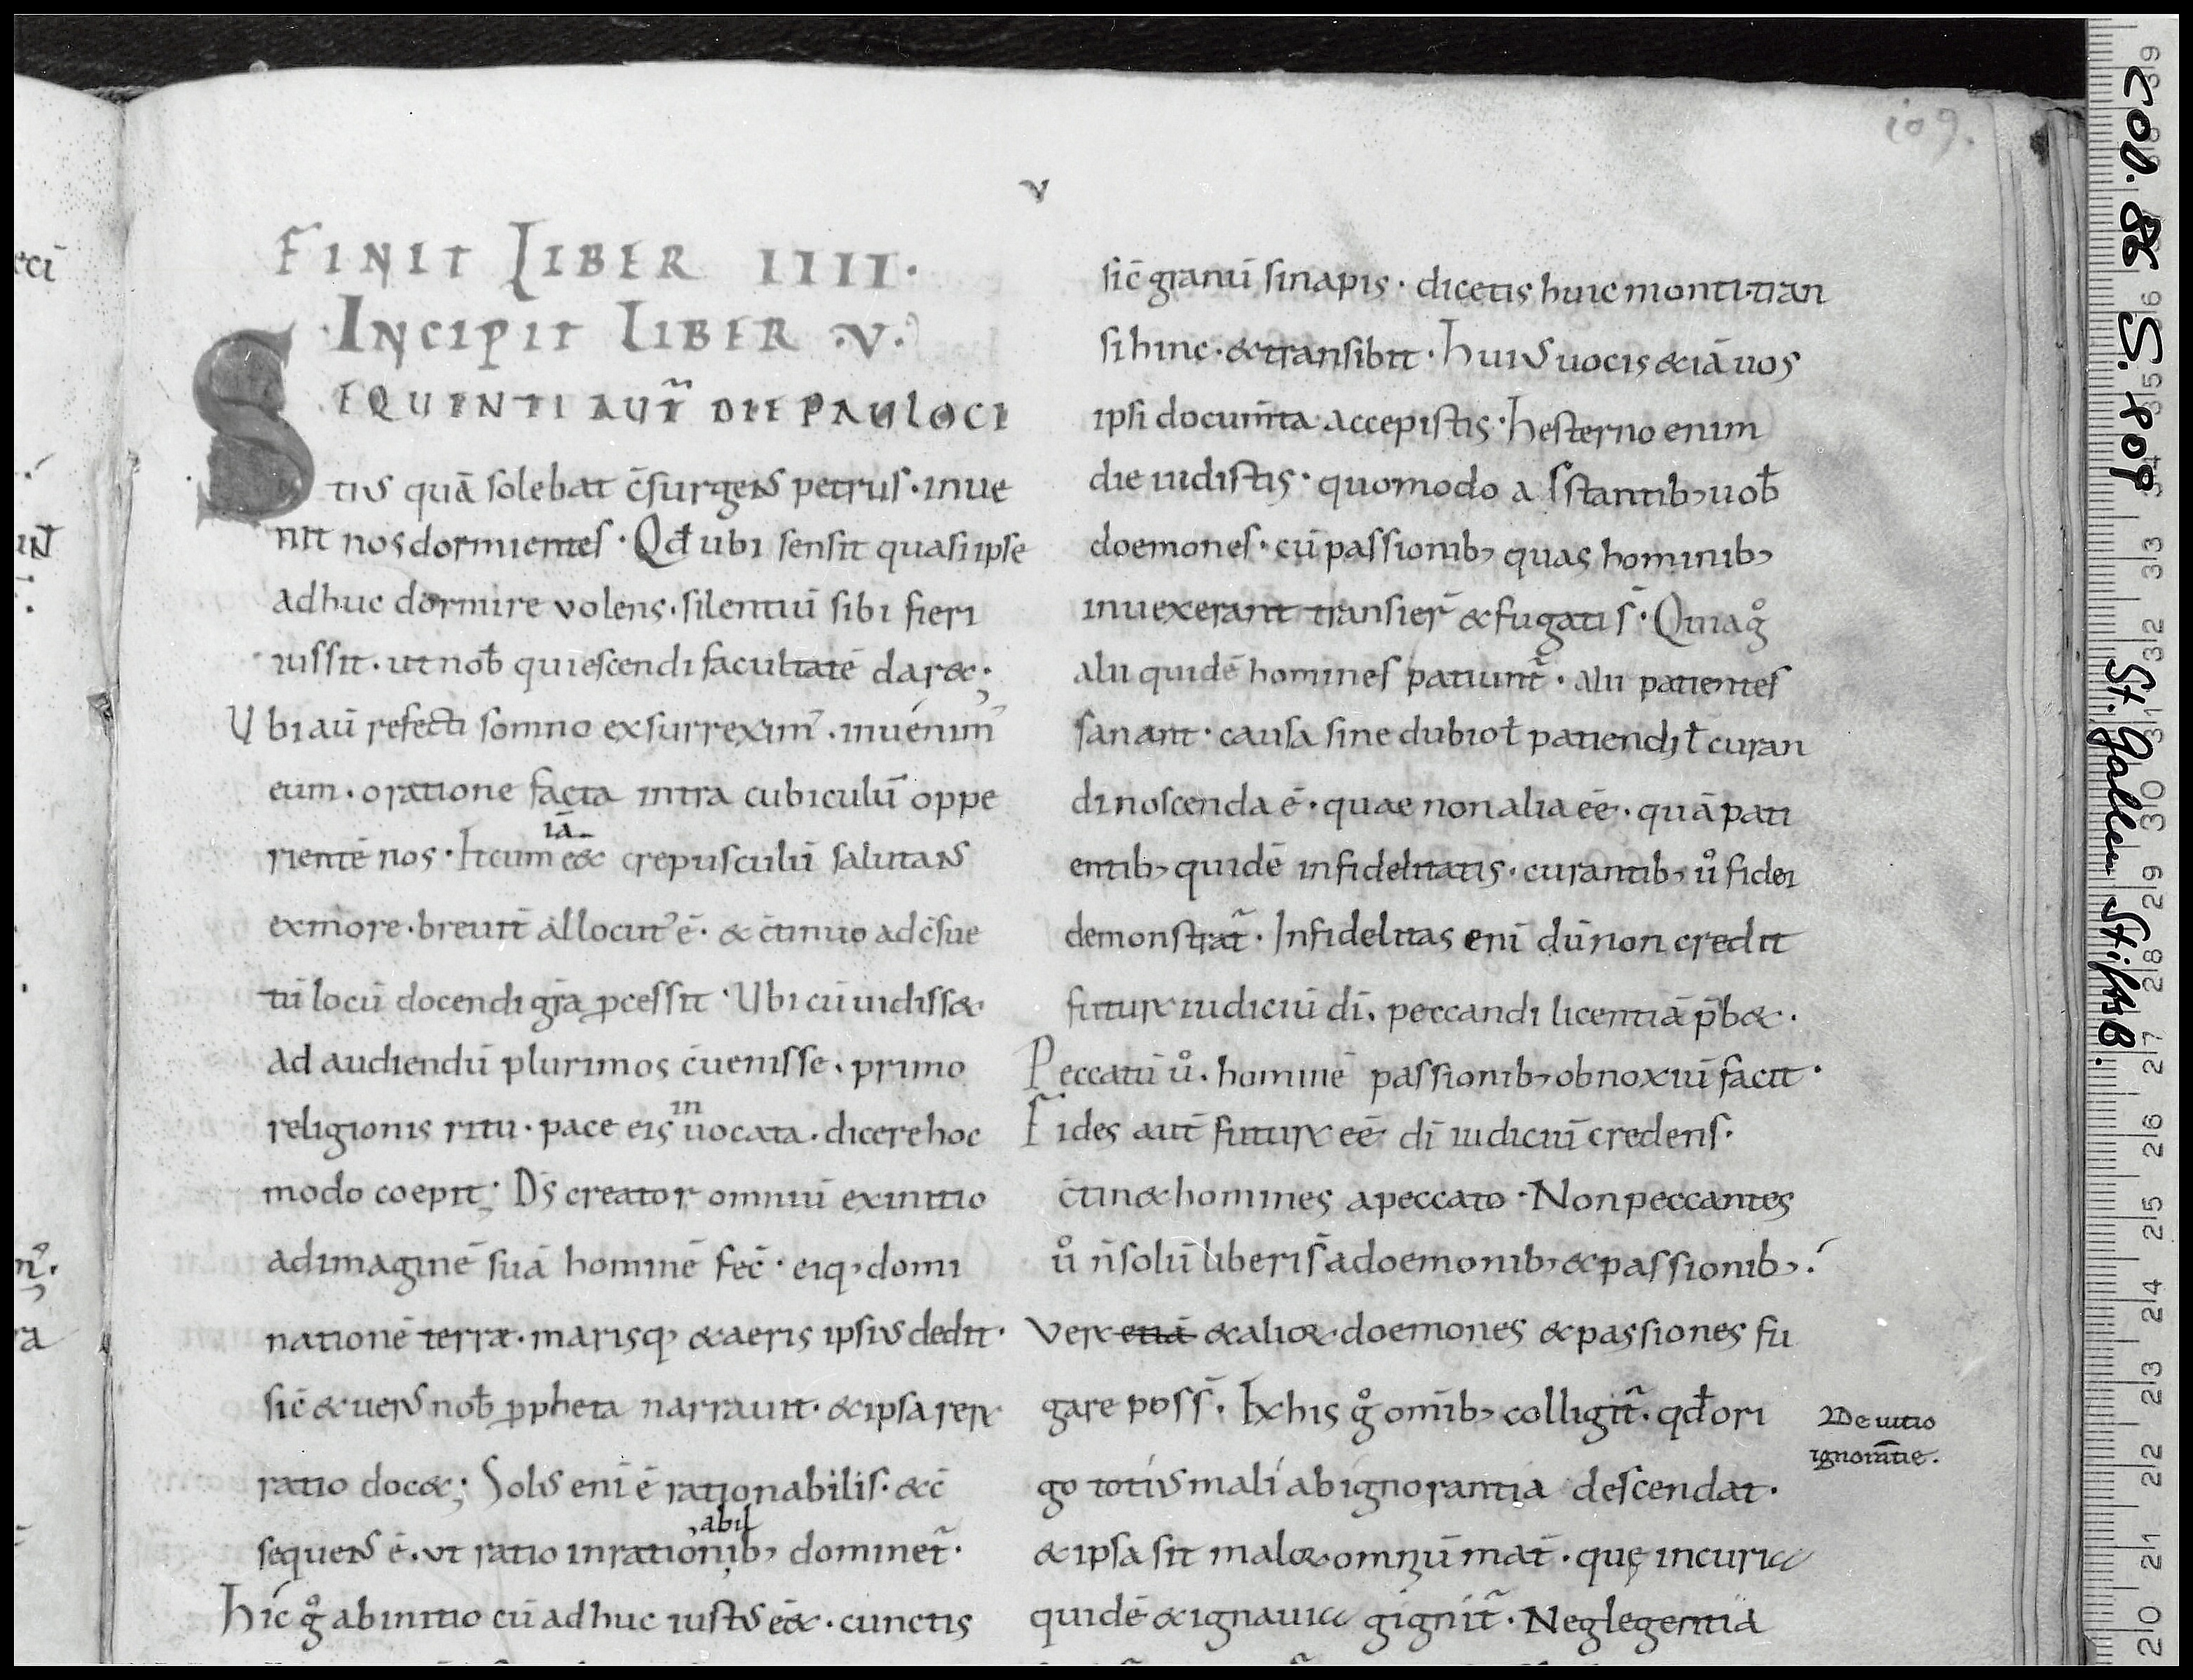 109.
v
FINIT LIBER IIII.
INCIPIT LIBER .V.
SEQUENTI AUT̃ DIE PAULOCI
tius quā solebat c̄surgens petrus · inue
nit nos dormientes · Qđ ubi sensit quasi ipse
adhuc dormire volens · silentiū sibi fieri
iussit · ut nob̄ quiescendi facultatē dar&;
Ubi aū refecti somno exsurrexim᾿ · inuenim᾿
eum · oratione facta intra cubiculū oppe
rientē nos · Et cum e&iā crepusculū salutans
ex more · breuit̄ allocut᾿ ē · & c̄tinuo ad c̄sue
tū locū docendi gr̄a ꝓcessit · Ubi cū uidiss&
ad audiendū plurimos c̄uenisse · primo
religionis ritu · pace eis inuocata · dicere hoc
modo coepit; D̄s creator omniū ex initio
ad imaginē suā hominē fec̄ · eiq; domi
nationē terræ · marisq; & aeris ipsius dedit ·
sic̄ & uerus nob̄ ꝓpheta narrauit · & ipsa rerꝝ
ratio doc&; Solus eni ē rationabilis · & c̄
sequens ē · ut ratio inrationabilib; dominet̃ ·
Hic g̊ ab initio cū adhuc iustus ēē& · cunctis
sic̄ granū sinapis · dicetis huic monti · tran
si hinc · & transibit · Huius uocis & iā uos
ipsi documīta accepistis · Hesterno enim
die uidistis · quomodo a͏dstantib; uob̄
doemones · cū passionib; quas hominib;
inuexerant transier̄ & fugati s̄ · Quia g̊
alii quidē homines patiunt̃ · alii patientes
sanant · causa sine dubio ł patiendi ł curan
di noscenda ē · quae non alia ēē · quā pati
entib; quidē infidelitatis · curantib; ů fidei
demonstrat̃ · Infidelitas eni dū non credit
futurꝝ iudiciū dī · peccandi licentiā p̄b& ·
Peccatū ů · hominē passionib; obnoxiū facit ·
Fides aut̄ futurꝝ ēē dī iudiciū credens ·
c̄tin& homines a peccato · Non peccantes
ů n̄ solū liberi s̄ a doemonib; & passionib; ·
Verꝝ etiā & alioꝝ · doemones & passiones fu
gare poss̄ · Ex his g̊ om̄ib; colligit̃ · qđ ori
go totius mali ab ignorantia descendat ·
& ipsa sit maloꝝ omniū mat̄ · quę incuria
quidē & ignauia gignit̃ · Neglegentia
De uitio
ignorātie.
Cod. 86 S. 109 St. Gallen StiftsB.
39
35
33
32
31
30
29
28
27
26
25
24
23
22
21
20